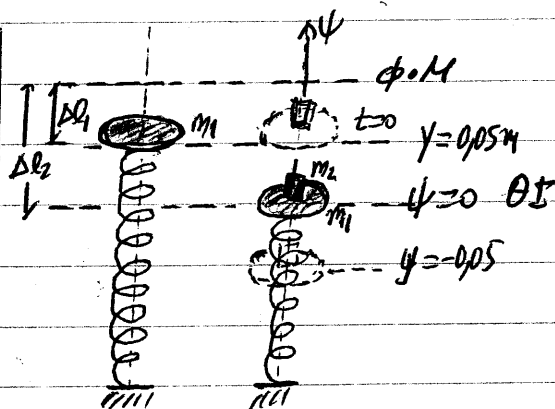 ψ
Φ.Μ
Δl₁
m₁
t=0
y=0,05m
Δl₂
m₂
m₁
ψ=0 ΘΙ
y=-0,05